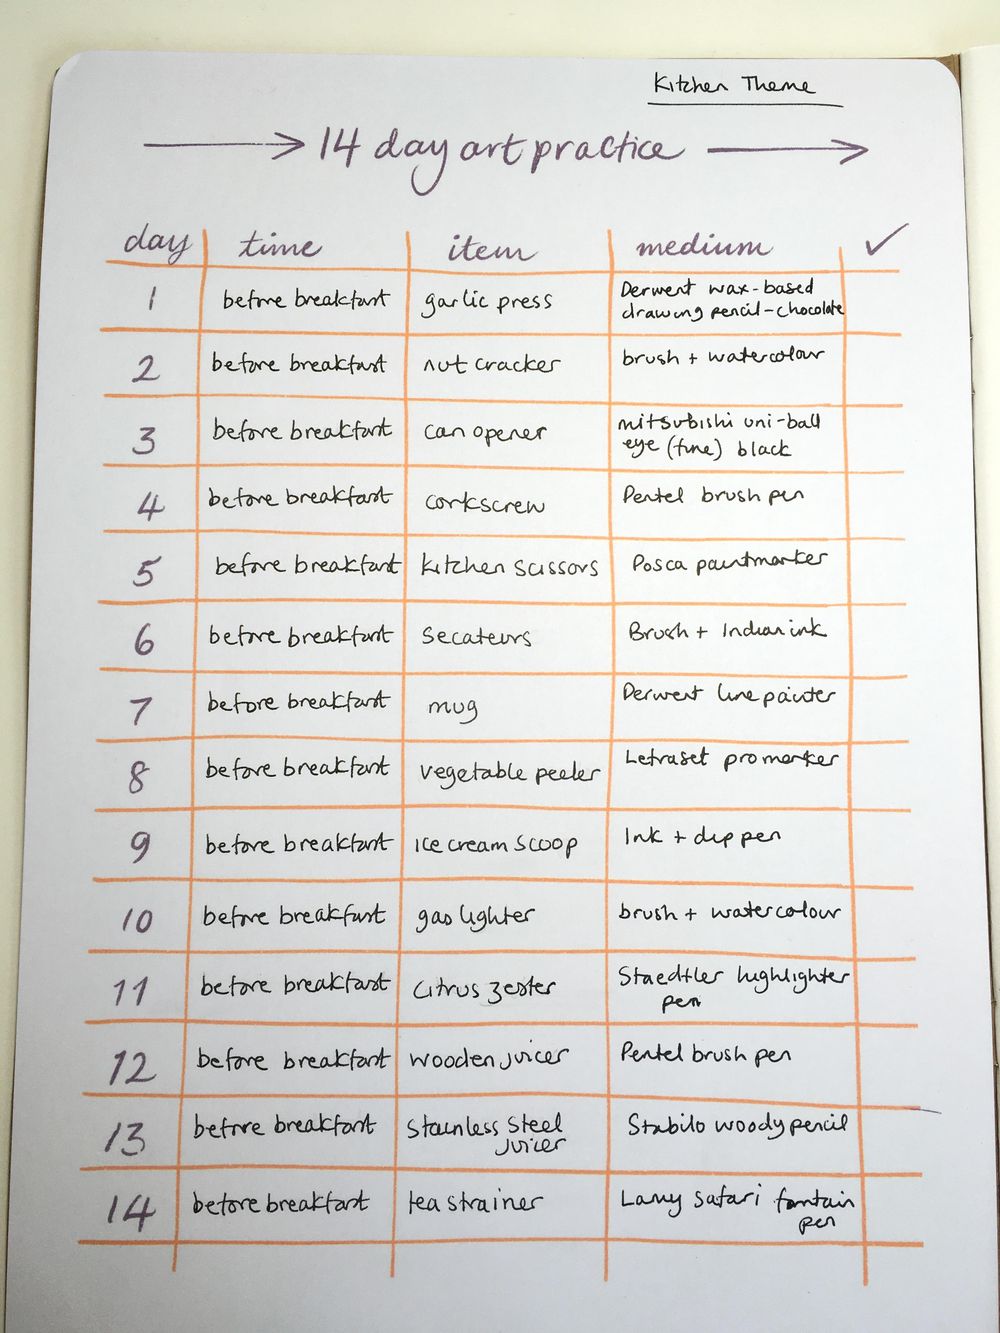 Kitchen Theme
14 day art practice
day time item medium ✓
1 before breakfast garlic press Derwent wax-based
drawing pencil-chocolate
2 before breakfast nut cracker brush + watercolour
3 before breakfast can opener mitsubishi uni-ball
eye (fine) black
4 before breakfast corkscrew Pentel brush pen
5 before breakfast kitchen scissors Posca paintmarker
6 before breakfast Secateurs Brush + Indian ink
7 before breakfast mug Derwent line painter
8 before breakfast vegetable peeler Letraset promarker
9 before breakfast ice cream scoop Ink + dip pen
10 before breakfast gas lighter brush + watercolour
11 before breakfast citrus zester Staedtler highlighter
pen
12 before breakfast wooden juicer Pentel brush pen
13 before breakfast Stainless Steel Stabilo woody pencil
juicer
14 before breakfast tea strainer Lamy Safari fontain
pen